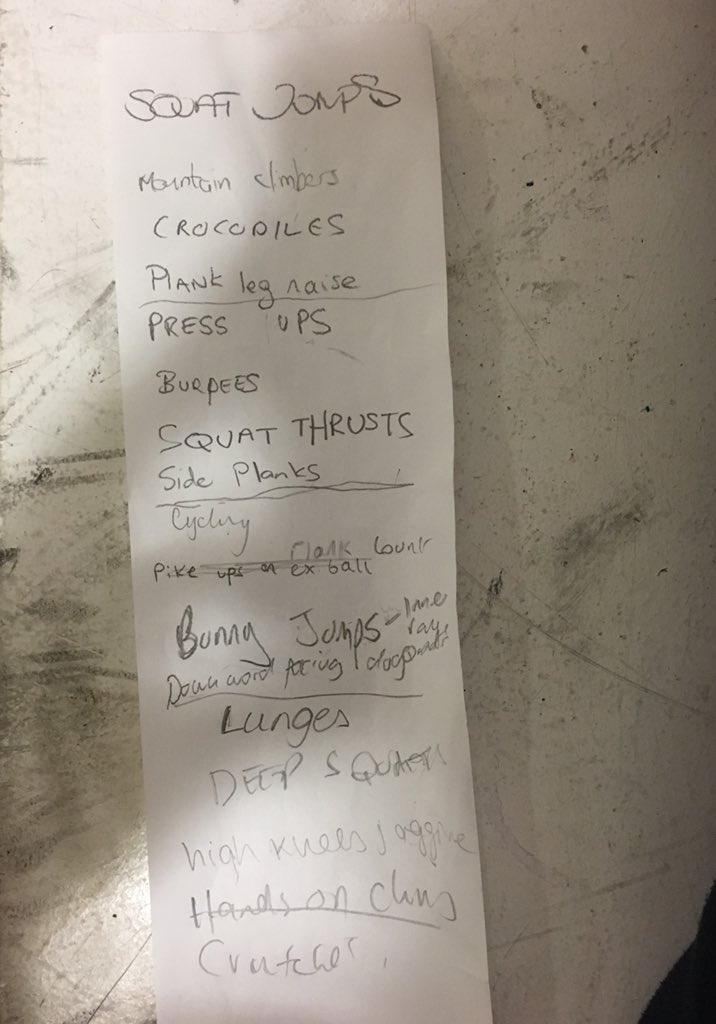 SQUAT JUMPS
Mountain climbers
CROCODILES
PLANK leg raise
PRESS UPS
BURPEES
SQUAT THRUSTS
Side Planks
Cycling
Plank
Pike ups on ex ball
Bunny Jumps -
Downward facing dog
Lunges
DEEP SQUATS
high knees jogging
Hands on